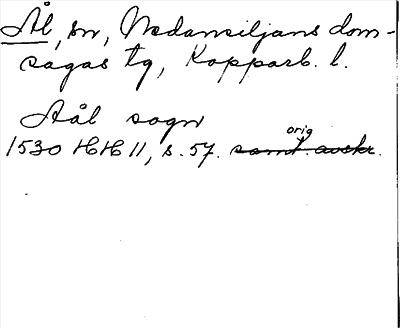 Ål, sn, Nedansiljans dom-
sagas tg, Kopparb. l.
Aål sogn
orig
1530 HH 11, s. 57. samt. avskr.